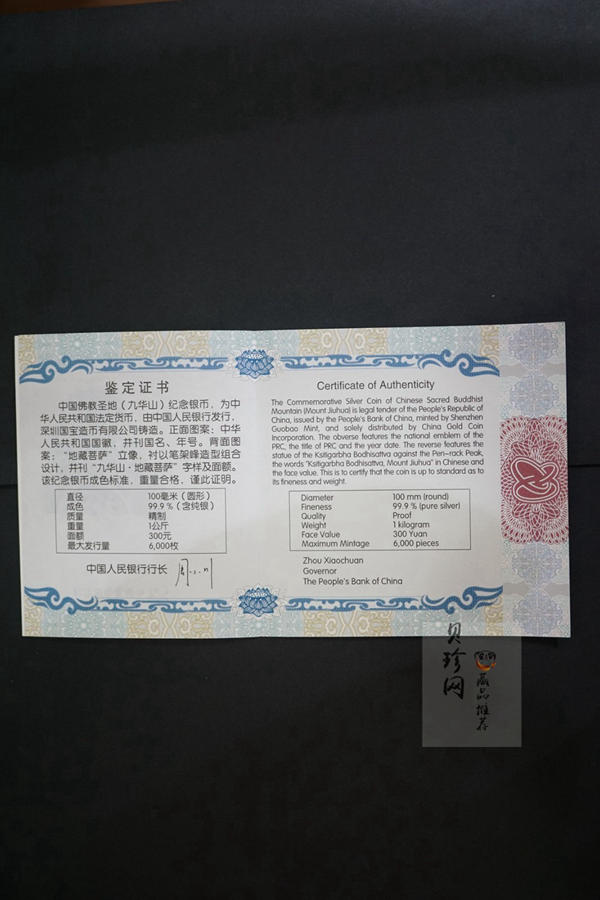 鉴定证书
中国佛教圣地（九华山）纪念银币，为中
华人民共和国法定货币，由中国人民银行发行，
深圳国宝造币有限公司铸造。正面图案：中华
人民共和国国徽，并刊国名、年号。背面图
案：“地藏菩萨”立像，衬以笔架峰造型组合
设计，并刊“九华山·地藏菩萨”字样及面额。
该纪念银币成色标准，重量合格，谨此证明。
直径 100毫米（圆形）
成色 99.9%（含纯银）
质量 精制
重量 1公斤
面额 300元
最大发行量 6,000枚
中国人民银行行长
Certificate of Authenticity
The Commemorative Silver Coin of Chinese Sacred Buddhist
Mountain (Mount Jiuhua) is legal tender of the People's Republic of
China, issued by the People's Bank of China, minted by Shenzhen
Guobao Mint, and solely distributed by China Gold Coin
Incorporation. The obverse features the national emblem of the
PRC, the title of PRC and the year date. The reverse features the
statue of the Ksitigarbha Bodhisattva against the Pen-rack Peak,
the words "Ksitigarbha Bodhisattva, Mount Jiuhua" in Chinese and
the face value. This is to certify that the coin is up to standard as to
its fineness and weight.
Diameter 100 mm (round)
Fineness 99.9 % (pure silver)
Quality Proof
Weight 1 kilogram
Face Value 300 Yuan
Maximum Mintage 6,000 pieces
Zhou Xiaochuan
Governor
The People's Bank of China
贝珍网
藏品推荐